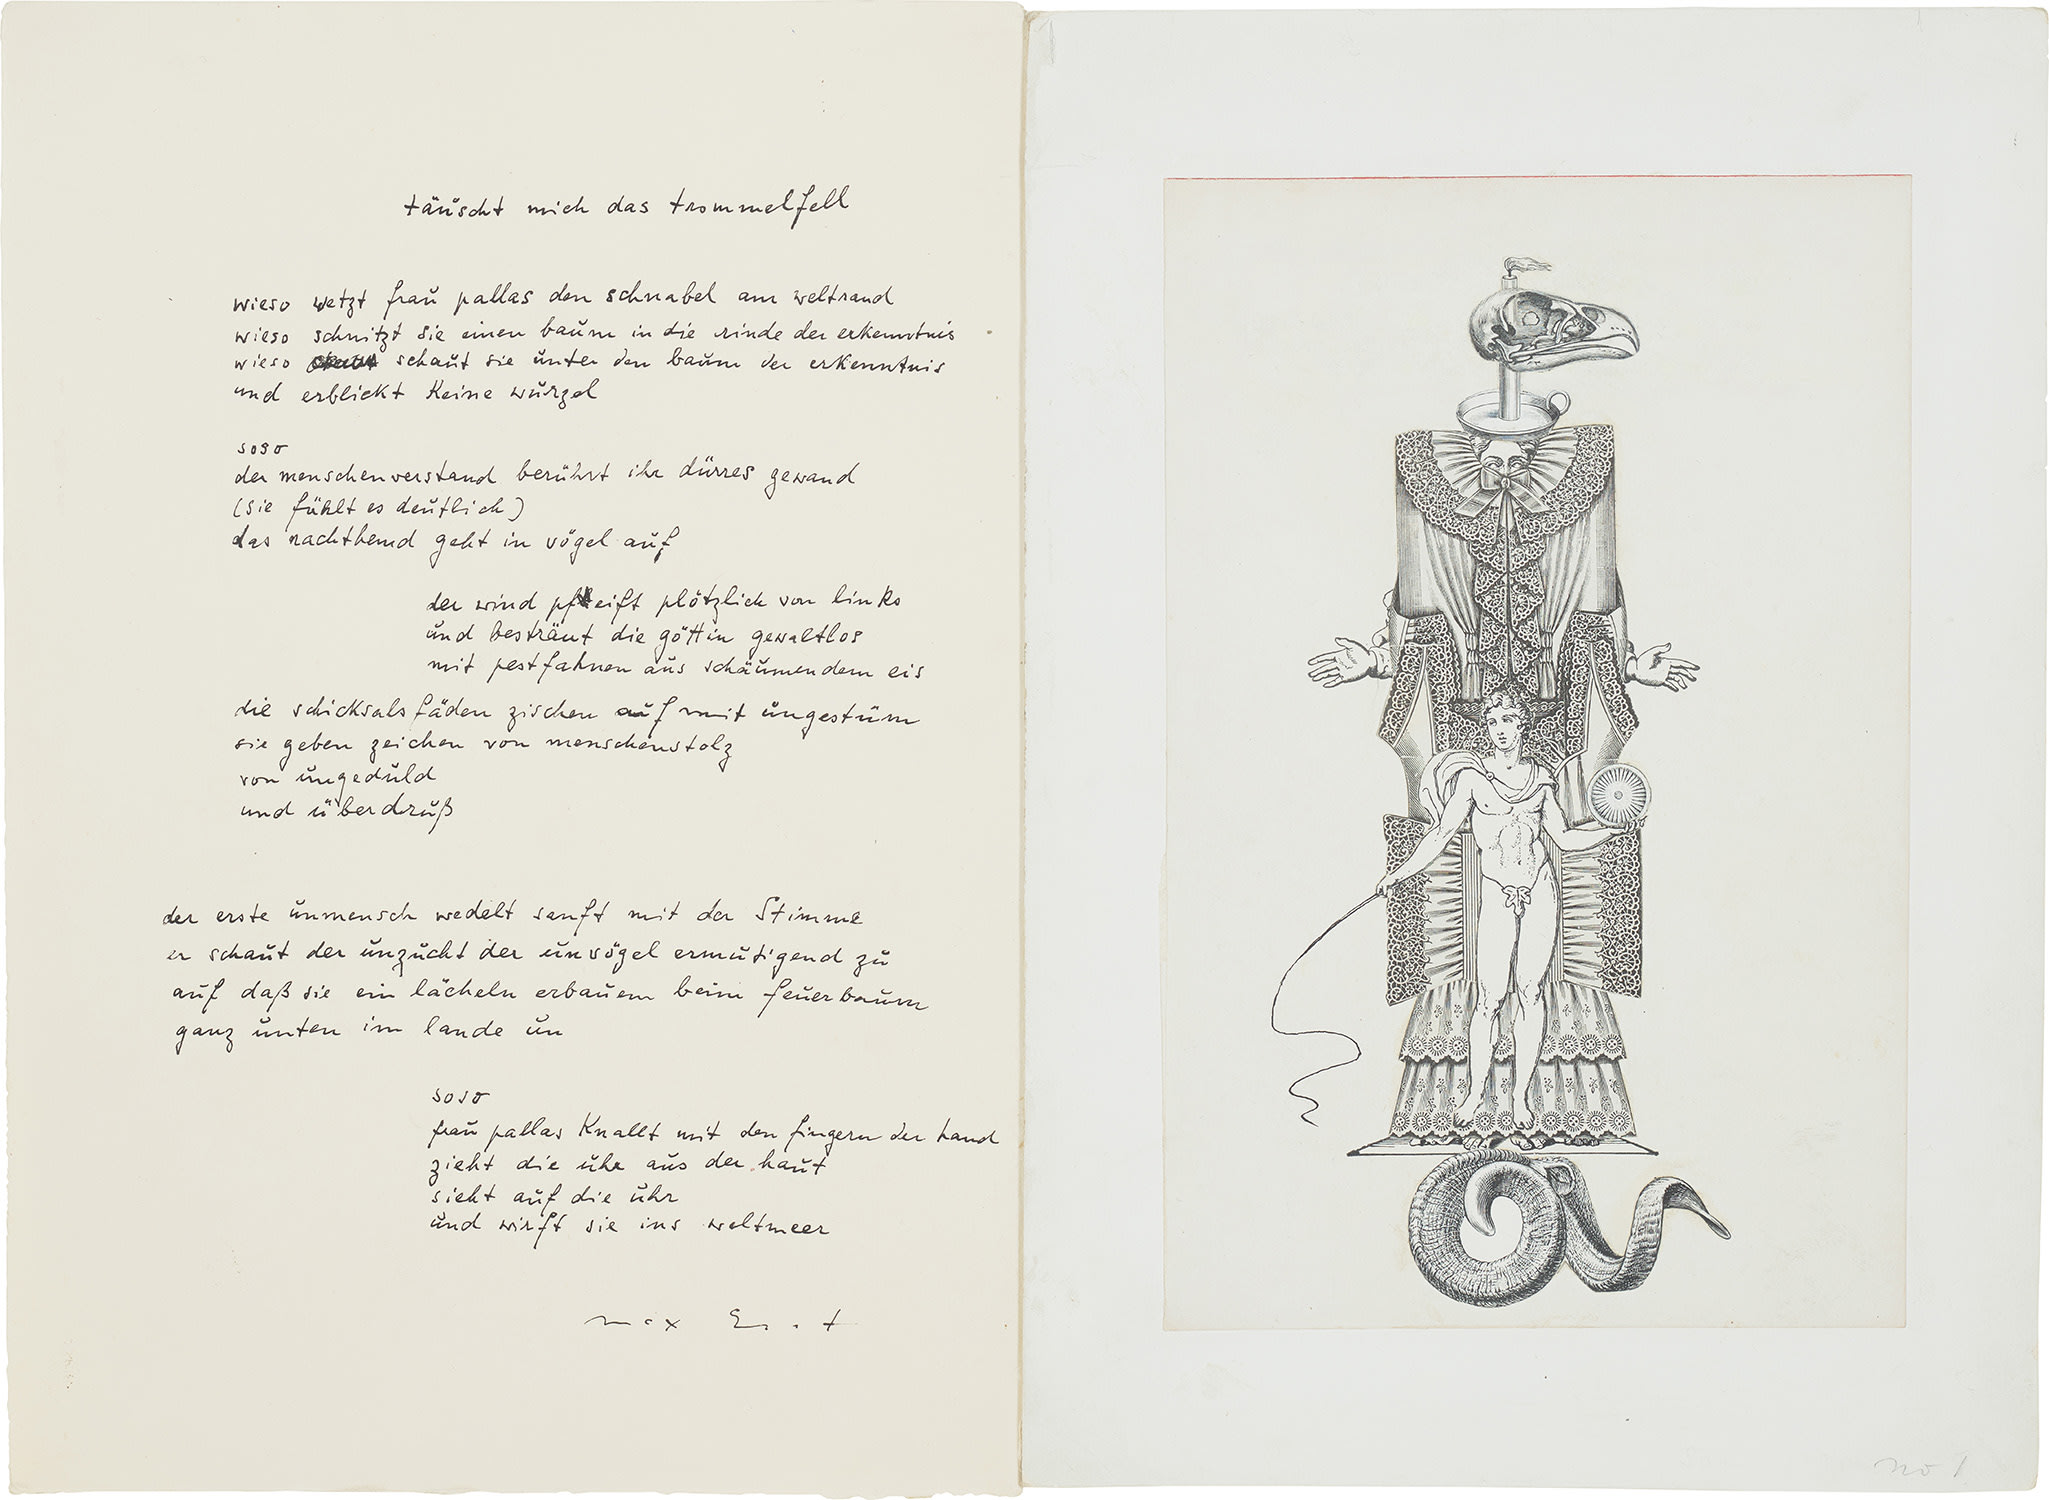 täuscht mich das trommelfell
wieso wetzt frau pallas den schnabel am weltrand
wieso schnitzt sie einen baum in die rinde der erkenntnis
wieso schaut sie unter den baum der erkenntnis
und erblickt keine wurzel
soso
der menschenverstand berührt ihr dürres gewand
(sie fühlt es deutlich)
das nachthemd geht in vögel auf
der wind pfeift plötzlich von links
und besträut die göttin gewaltlos
mit pestfahnen aus schäumendem eis
die schicksalsfäden zischen auf mit ungestüm
sie geben zeichen von menschenstolz
von ungeduld
und überdruß
der erste unmensch wedelt sanft mit der Stimme
er schaut der unzucht der unvögel ermutigend zu
auf daß sie ein lächeln erbauen beim feuerbaum
ganz unten im lande un
soso
frau pallas knallt mit den fingern der hand
zieht die uhr aus der haut
sieht auf die uhr
und wirft sie ins weltmeer
max Ernst
no 1